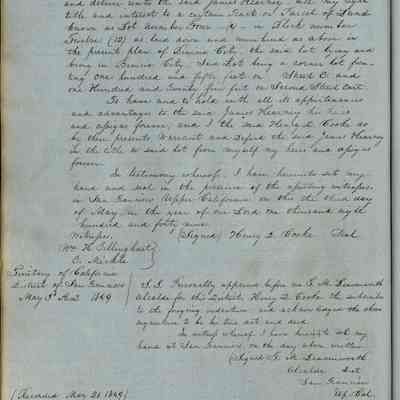 and deliver unto the said James Hearney all my right
title and interest to a certain Tract or Parcel of Land
known as Lot Number Four - 4 - in Block number
Twelve (12) as laid down and numbered as above in
the present plan of Benicia City, the said lot lying and
being in Benicia City, said Lot being a corner lot fron-
ting one hundred and fifty feet on Street C. and
one Hundred and Twenty five feet on Second Street East.
To have and to hold with all its appurtenances
and advantages to the said James Hearney his heirs
and assigns forever, and I the said Henry D. Cooke do
by these presents Warrant and Defend the said James Hearney
in the title to said lot from myself my heirs and assigns
forever.
In testimony whereof, I have hereunto set my
hand and seal in the presence of the
in San Francisco (Upper California) on this the third day
of May in the year of our Lord one thousand eight
hundred and forty nine.
Witnesses. (Signed) Henry D. Cooke Seal
Wm H. Tillinghast
C. Mickle
Territory of California
District of San Francisco
May 3d A.D. 1849
S.S. Personally appeared before me T. M. Leavenworth
Alcalde for this District, Henry D. Cooke the subscriber
to the foregoing indenture and acknowledged the above
to be his free act and deed.
In witness whereof I have hereunto set my
hand at San Francisco, on the day above written
(Signed) T. M. Leavenworth
Alcalde Dist
San Francisco
Up. Cal.
(Recorded May 21 1849)